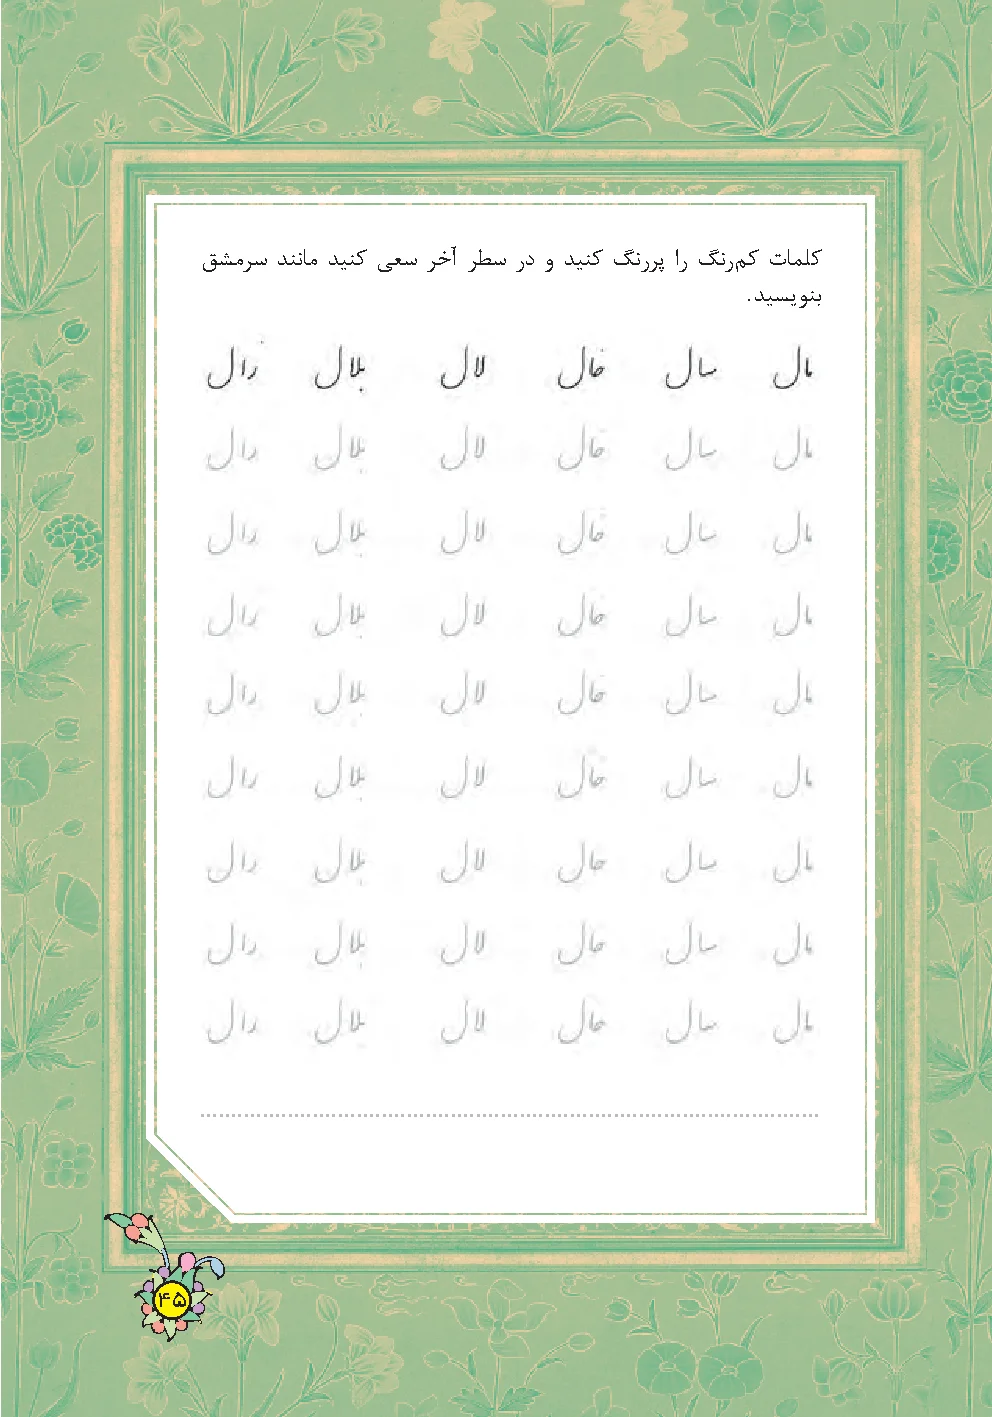 کلمات کم‌رنگ را پررنگ کنید و در سطر آخر سعی کنید مانند سرمشق
بنویسید.
مال سال خال لال بلال زال
مال سال خال لال بلال زال
مال سال خال لال بلال زال
مال سال خال لال بلال زال
مال سال خال لال بلال زال
مال سال خال لال بلال زال
مال سال خال لال بلال زال
مال سال خال لال بلال زال
مال سال خال لال بلال زال
۴۵